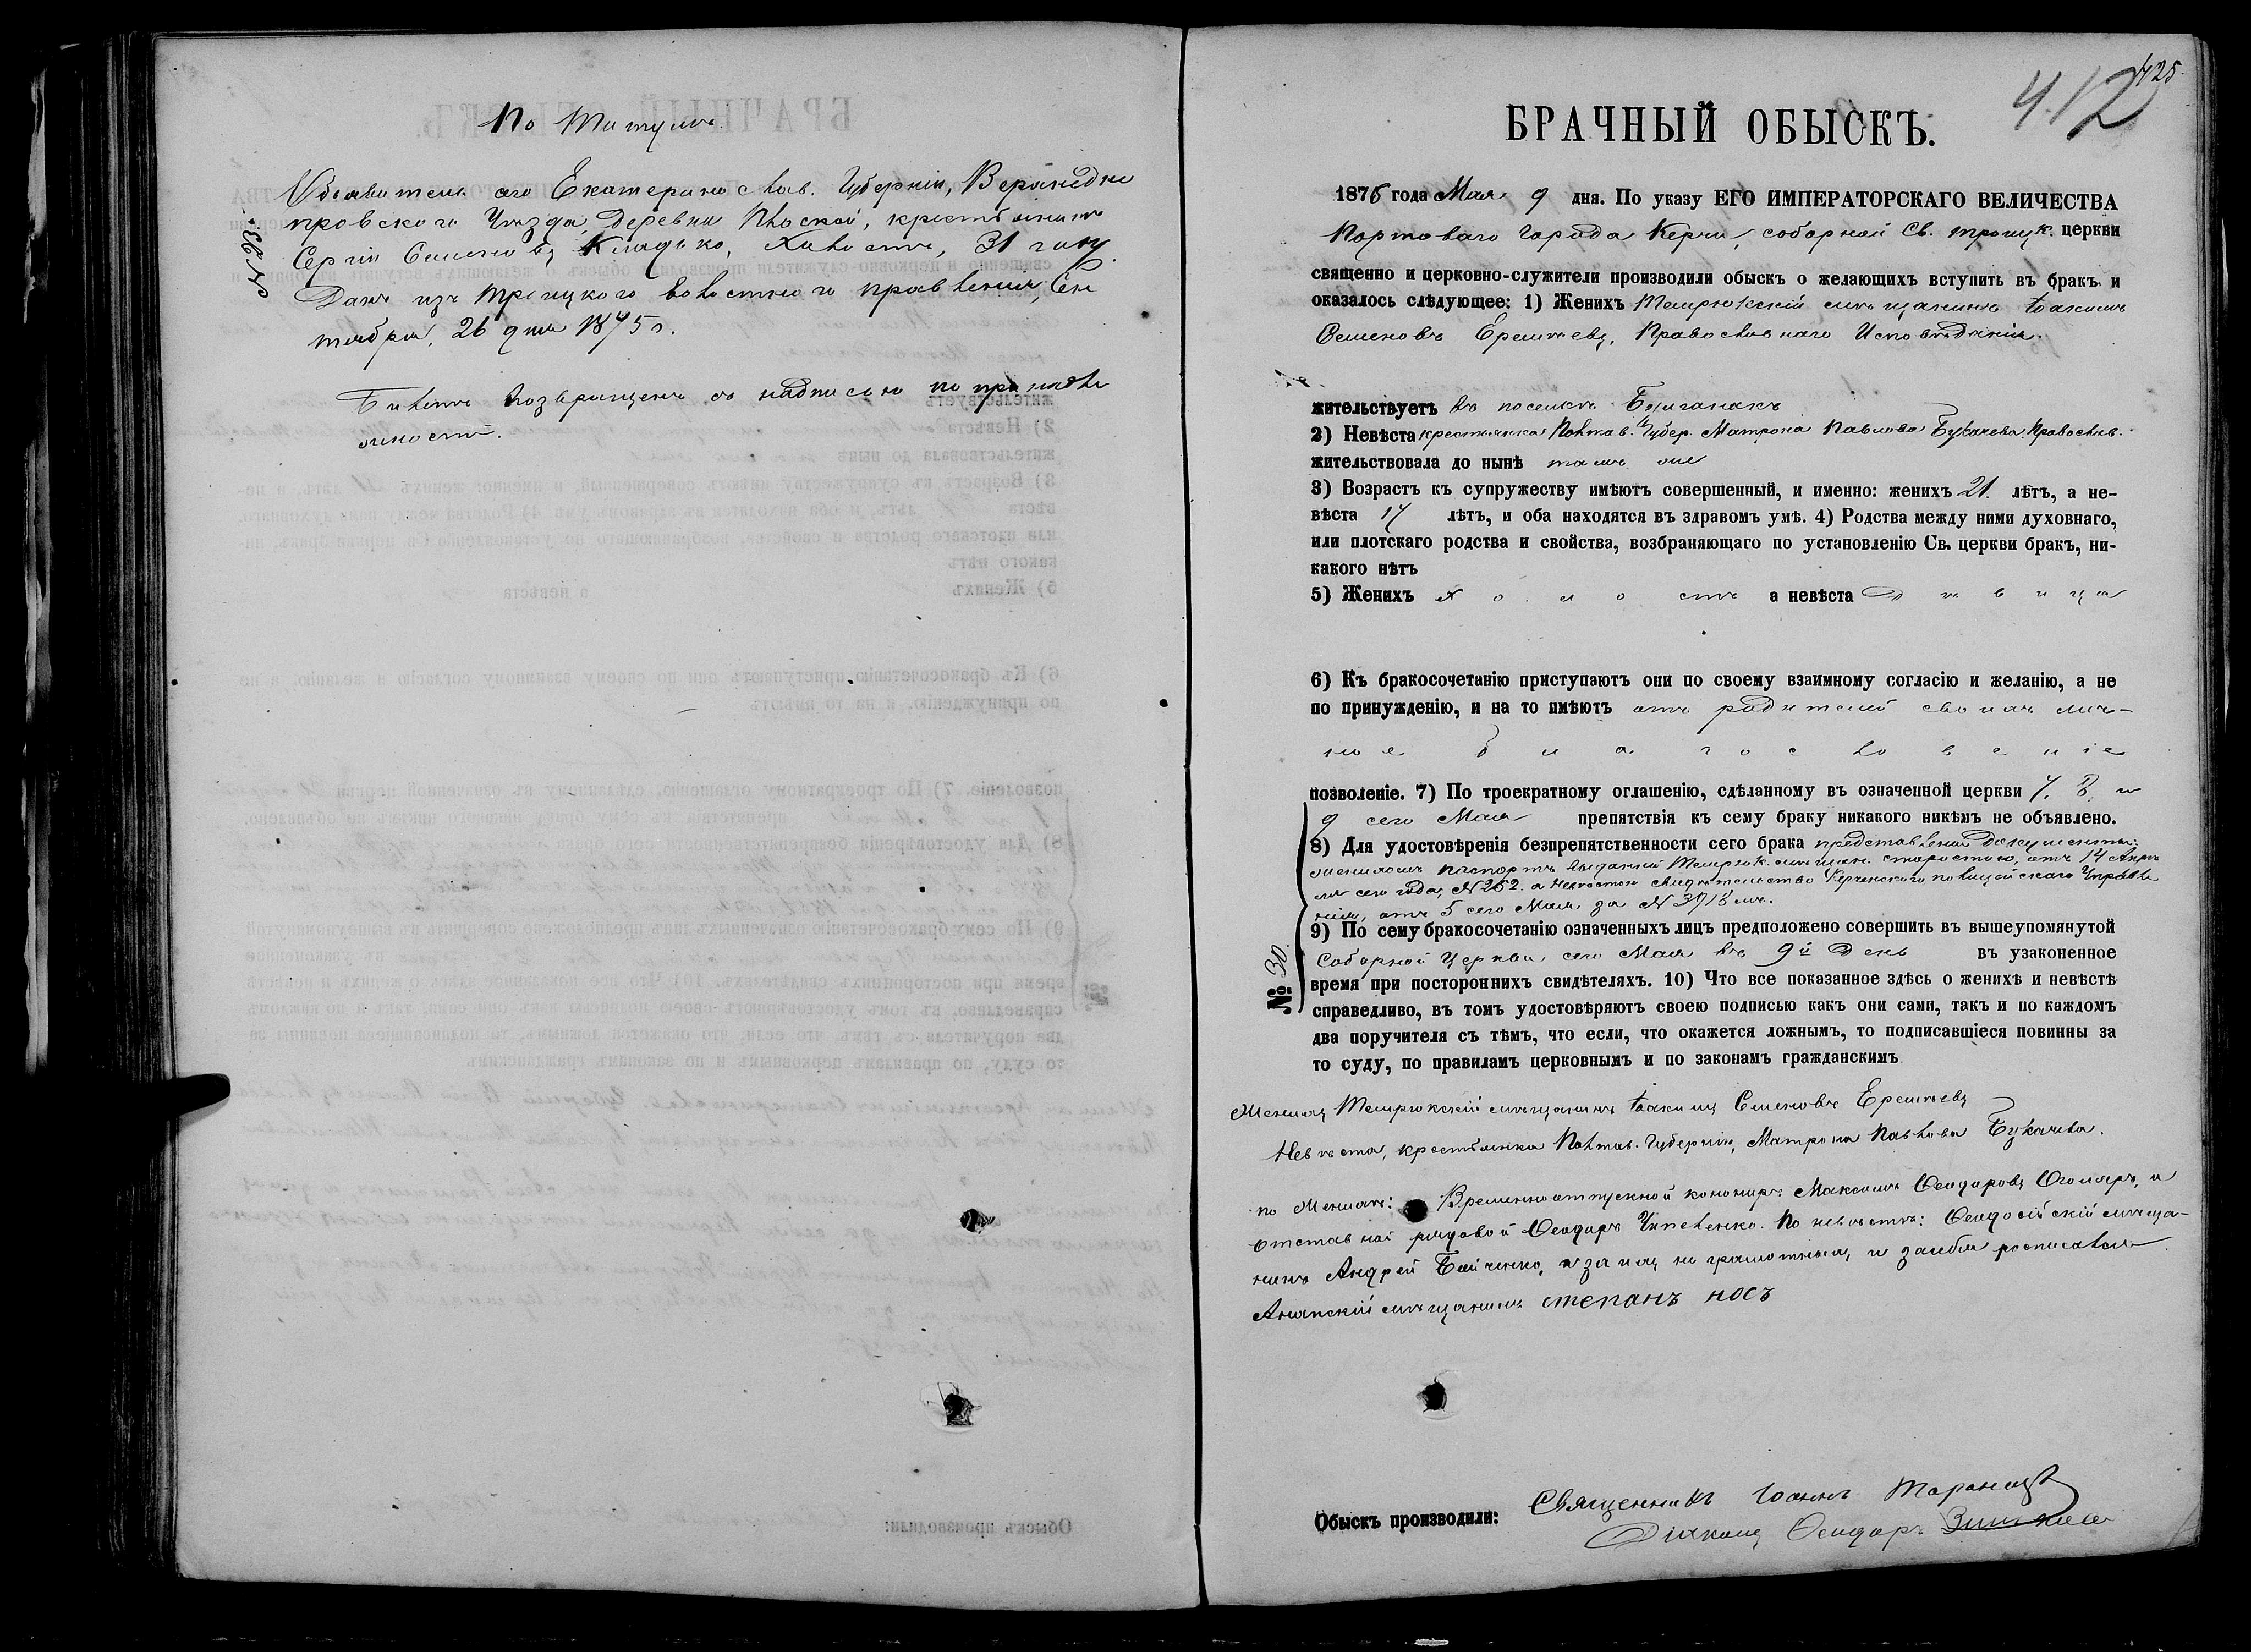 По Титулѣ.
Объявитель сего Екатериносла­в. Губерніи, Верхнедне
провскаго Уѣзда, деревни Плоской, крестьянинъ
Сергій Семеновъ Кладько, Холостъ, 31 году.
Данъ изъ Троицкаго волостного правленія, Сен
тября, 26 дня 1875 г.
Билетъ возвращенъ съ надписью по принадле
жности.
412
425
БРАЧНЫЙ ОБЫСКЪ.
1876 года Мая 9 дня. По указу ЕГО ИМПЕРАТОРСКАГО ВЕЛИЧЕСТВА
Портоваго Города Керчи, соборной Св. Троицк. церкви
священно и церковно-служители производили обыскъ о желающихъ вступить въ бракъ и
оказалось слѣдующее: 1) Женихъ Темрюкскій мѣщанинъ Іоакимъ
Семеновъ Еремѣевъ, Православнаго Исповѣданія.
жительствуетъ въ поселкѣ
2) Невѣста крестьянка Полтав. Губер. Матрона Павлова Букачева. Православ.
жительствовала до нынѣ тамъ же
3) Возрастъ къ супружеству имѣютъ совершенный, и именно: женихъ 21. лѣтъ, а не-
вѣста 17 лѣтъ, и оба находятся въ здравомъ умѣ. 4) Родства между ними духовнаго,
или плотскаго родства и свойства, возбраняющаго по установленію Св. церкви бракъ, ни-
какого нѣтъ
5) Женихъ холостъ а невѣста дѣвица
6) Къ бракосочетанію приступаютъ они по своему взаимному согласію и желанію, а не
по принужденію, и на то имѣютъ отъ родителей своихъ лич-
ное благословеніе
позволеніе. 7) По троекратному оглашенію, сдѣланному въ означенной церкви 7, 8, и
9 сего Мая препятствія къ сему браку никакого никѣмъ не объявлено.
8) Для удостовѣренія безпрепятственности сего брака представлены документы:
женихомъ паспортъ выданный Темрюк. мѣщан. старостою, отъ 14 Апрѣ
ля сего года, № 252. а невѣстою свидѣтельство Керченскаго полицейскаго Управле
нія, отъ 5 сего Мая за №
№ 30.
9) По сему бракосочетанію означенныхъ лицъ предположено совершить въ вышеупомянутой
Соборной Церкви, сего Мая въ 9й день въ узаконенное
время при постороннихъ свидѣтеляхъ. 10) Что все показанное здѣсь о женихѣ и невѣстѣ
справедливо, въ томъ удостовѣряютъ своею подписью какъ они сами, такъ и по каждомъ
два поручителя съ тѣмъ, что если, что окажется ложнымъ, то подписавшіеся повинны за
то суду, по правиламъ церковнымъ и по законамъ гражданскимъ
Женихъ Темрюкскій мѣщанинъ Іоакимъ Семеновъ Еремѣевъ
Невѣста, крестьянка Полтав. Губерніи, Матрона Павлова Букачева.
по Женихѣ: Временноотпускной канониръ Максимъ Ѳеодоровъ и
отставной рядовой Ѳеодоръ По невѣстѣ: Ѳеодосійскій мѣща-
нинъ Андрей Бойченко, а за нихъ неграмотныхъ и за себя росписался
Анапскій мѣщанинъ степанъ носъ
Обыскъ производили: Священникъ Іоаннъ
Діаконъ Ѳеодоръ